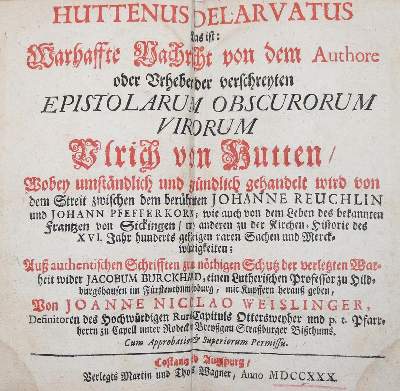 HUTTENUS DELARVATUS
Das ist:
Warhaffte Nachricht von dem Authore
oder Urheber der verschreyten
EPISTOLARUM OBSCURORUM
VIRORUM
Ulrich von Hutten/
Wobey umständlich und gründlich gehandelt wird von
dem Streit zwischen dem berühmten JOHANNE REUCHLIN
und JOHANN PFEFFERKORN; wie auch von dem Leben des bekannten
Frantzen von Sickingen/ und anderen zu der Kirchen-Historie des
XVI. Jahr hunderts gehörigen raren Sachen und Merck-
würdigkeiten;
Auß authentischen Schrifften zu nöthigen Schutz der verletzten War-
heit wider JACOBUM BURCKHARD, einen Lutherischen Professor zu Hild-
burgshausen im Fürstenthum, mit Kupffern herauß geben,
Von JOANNE NICOLAO WEISLINGER,
Definitoren des Hochwürdigen Rural-Capituls Ottersweyher und p. t. Pfarr-
herrn zu Capell unter Rodeck im Breyßgau Straßburger Bißthums.
Cum Approbatione & Superiorum Permissu.
Costantz und Augspurg/
Verlegts Martin und Thomas Wagner, Anno MDCCXXX.